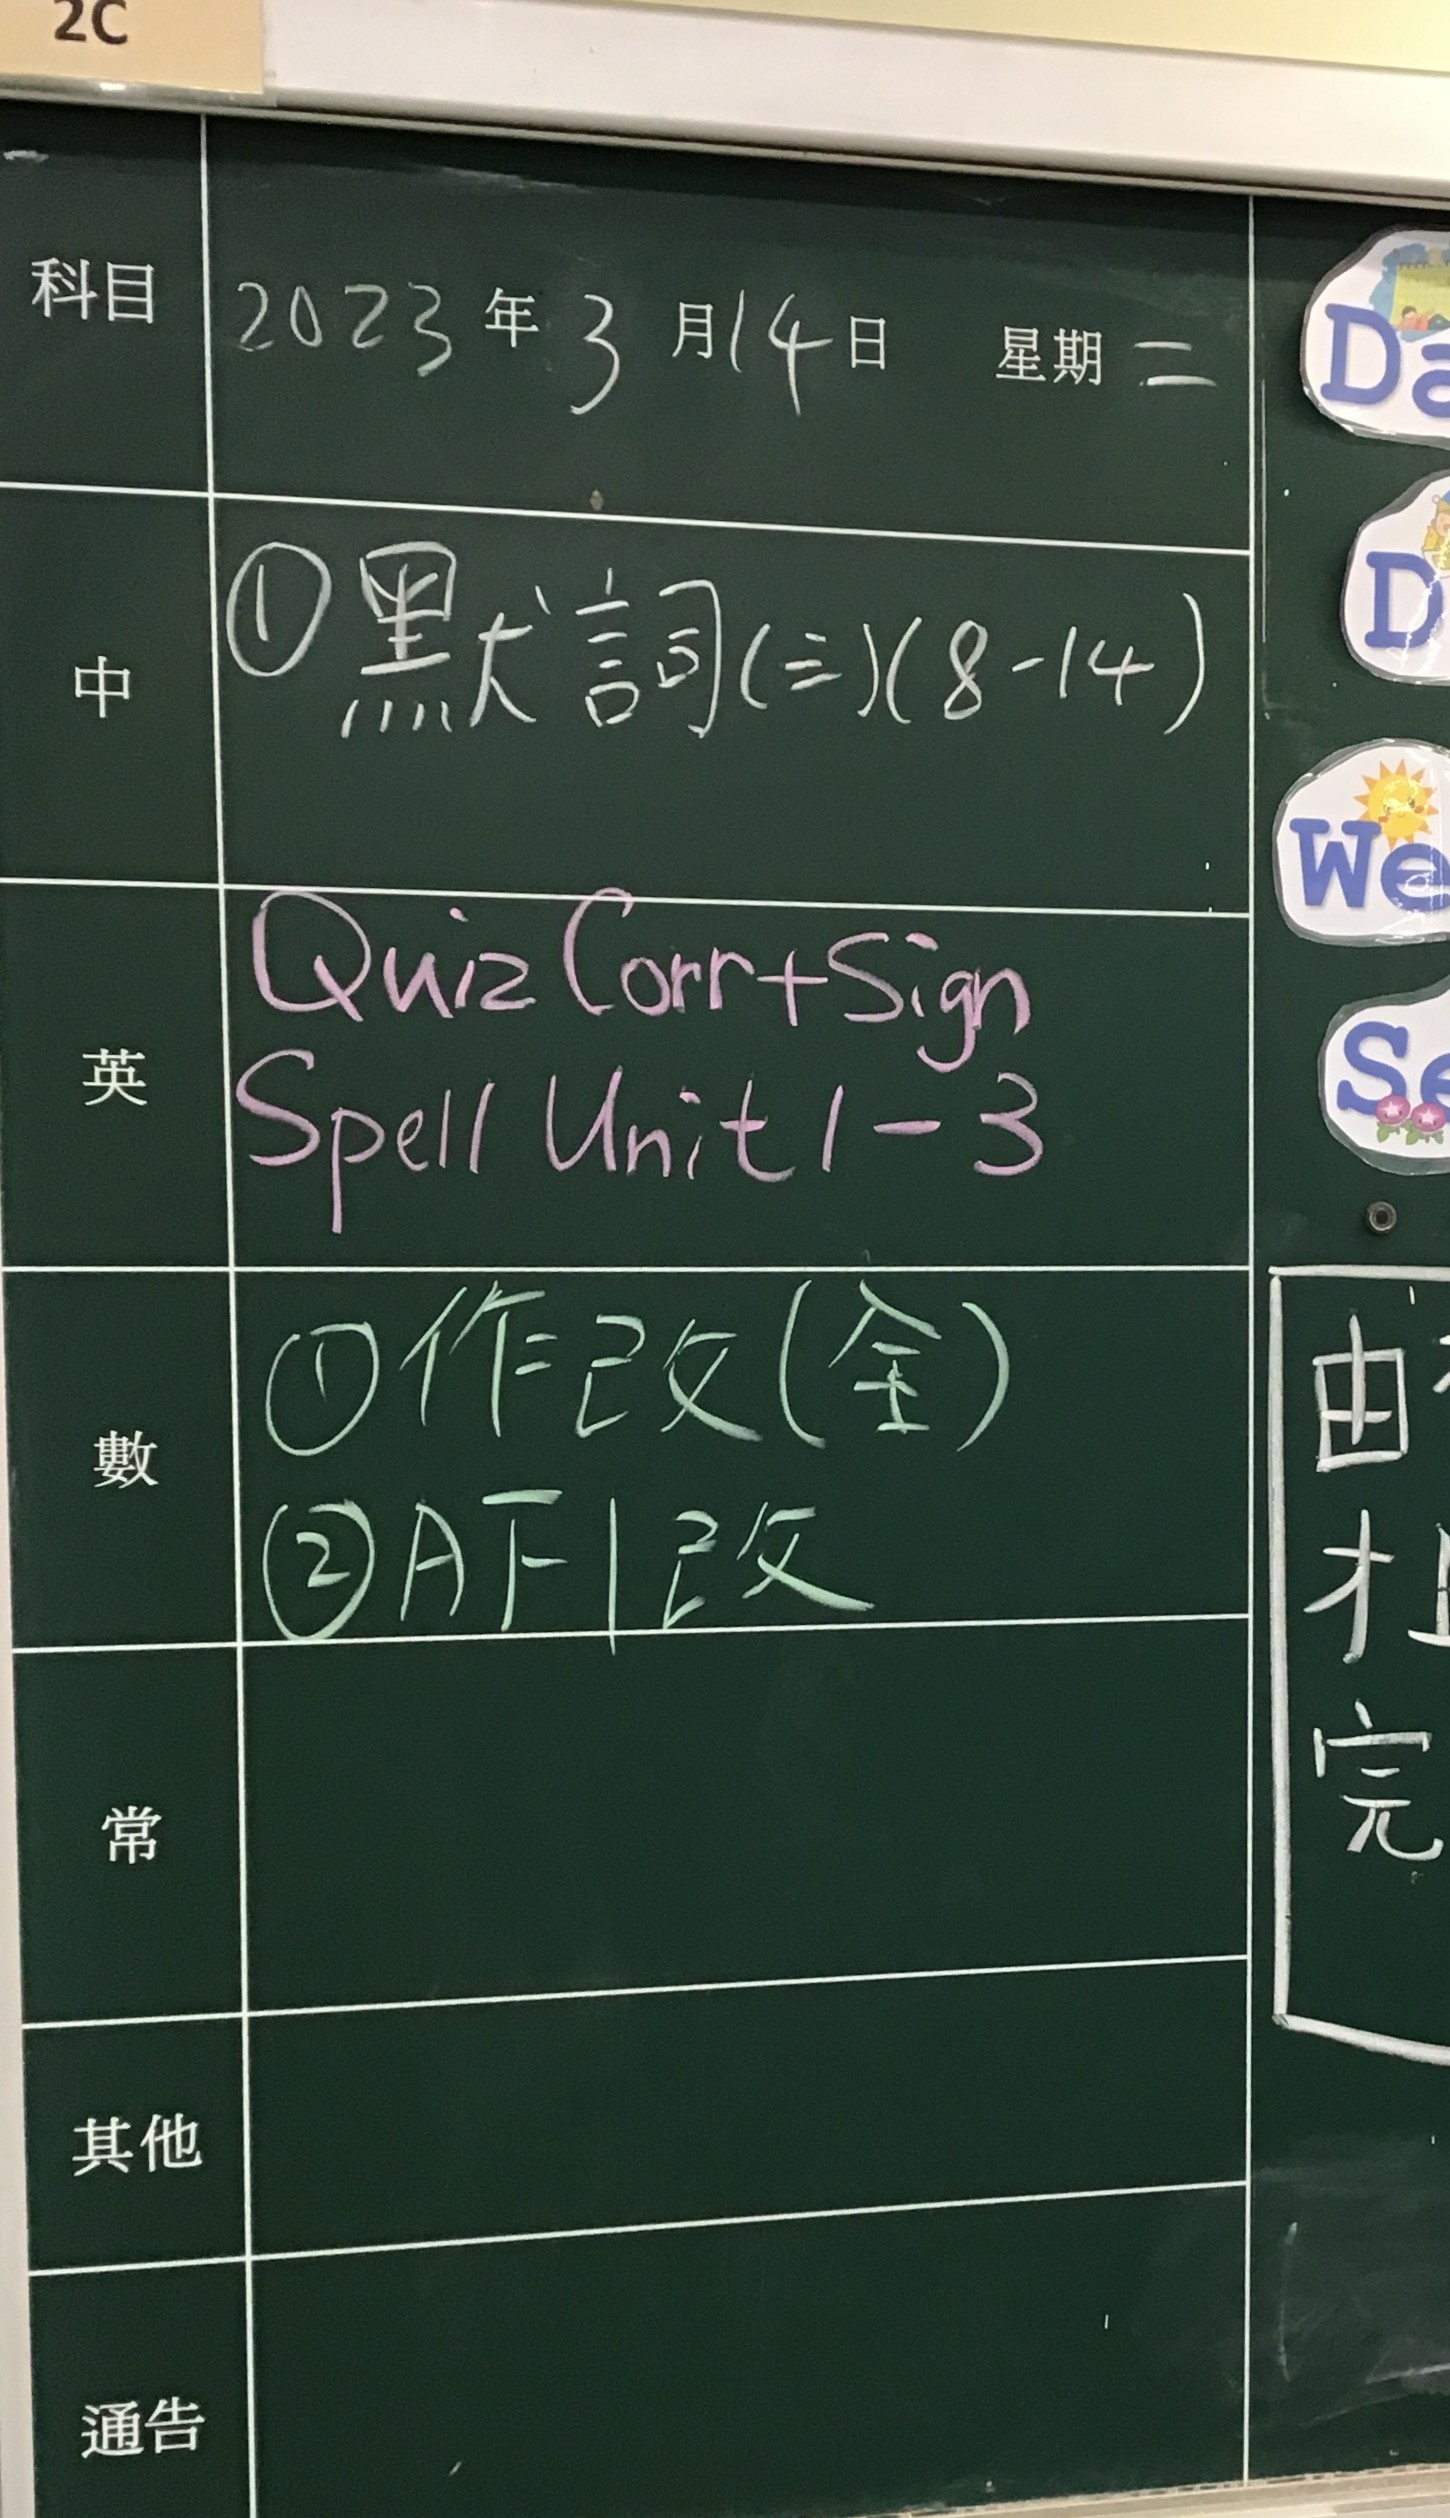 2C
科目 2023年3月14日 星期二
中 ①默詞(三)(8-14)
英 Quiz Corr+Sign
Spell Unit 1-3
數 ①作改(全)
②A下1改
常
其他
通告
Da
D
We
Se
由
完